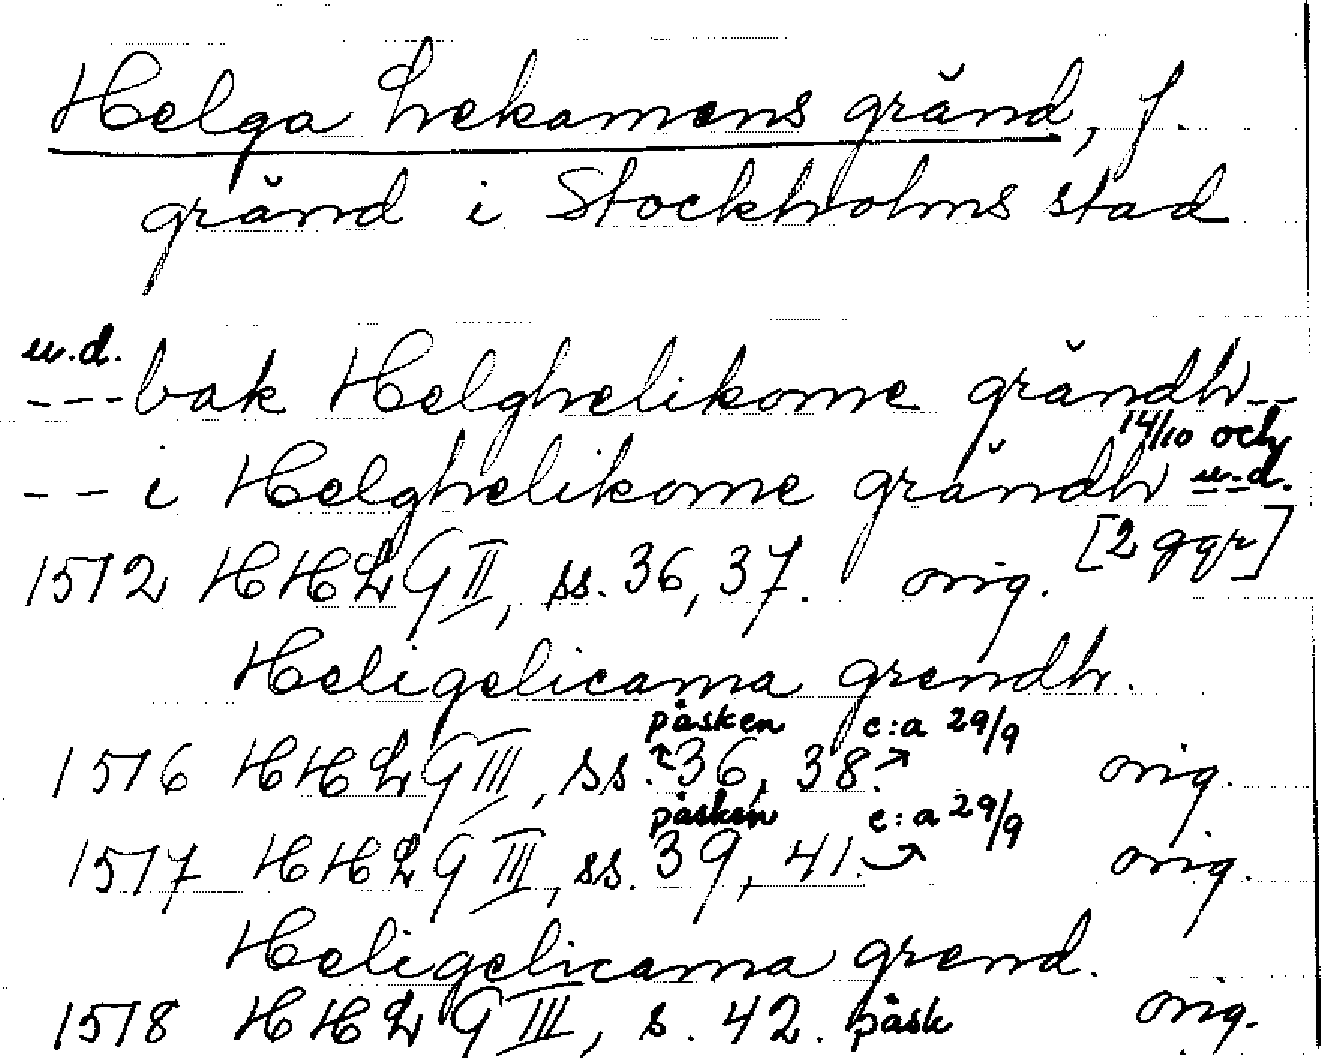 Helga Lekamens gränd, f.
gränd i Stockholms stad
u.d.
--- bak Helghelikome grändh --
14/10 och
-- i Helghelikome grändh u.d.
[2 ggr]
1512 HHLG II, ss. 36, 37. orig.
Heligelicama grendh.
påsken c:a 29/9
1516 HHLG III, ss. 36, 38. orig.
påsken c:a 29/9
1517 HHLG III, ss. 39, 41. orig.
Heligelicama grend.
1518 HHLG III, s. 42. påsk orig.